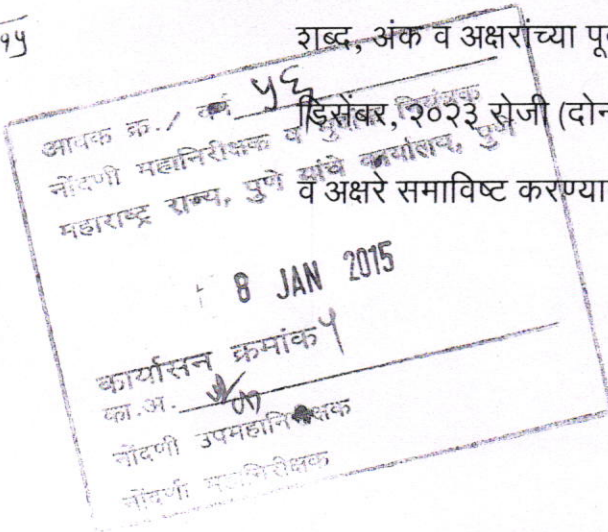 १५
शब्द, अंक व अक्षरांच्या पू
डिसेंबर, २०२३ रोजी (दोन
व अक्षरे समाविष्ट करण्या
आवक क्र./ ५६
नोंदणी महानिरीक्षक व मुद्रांक नियंत्रक
महाराष्ट्र राज्य, पुणे यांचे कार्यालय, पुणे
8 JAN 2015
कार्यासन क्रमांक ५
का.अ.
नोंदणी उपमहानिरीक्षक
नोंदणी महानिरीक्षक